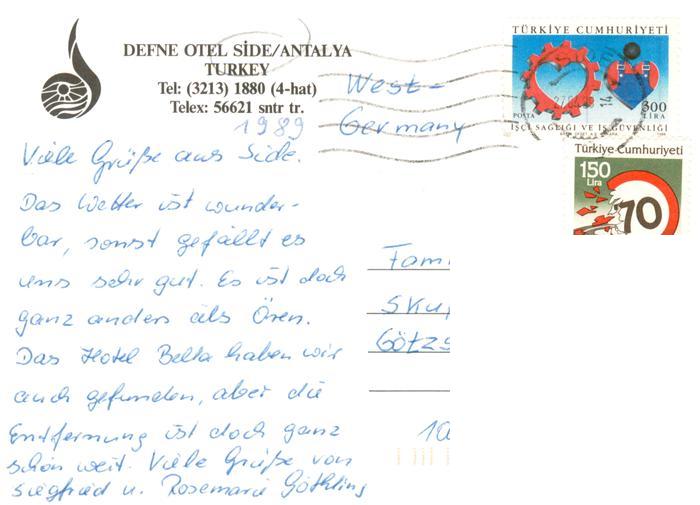 DEFNE OTEL SİDE/ANTALYA
TURKEY
Tel: (3213) 1880 (4-hat)
Telex: 56621 sntr tr.
1989
West-
Germany
TÜRKİYE CUMHURİYETİ
POSTA
300
LİRA
İŞÇİ SAĞLIĞI VE İŞ GÜVENLİĞİ
Türkiye Cumhuriyeti
150
Lira
70
Viele Grüße aus Side.
Das Wetter ist wunder-
bar, sonst gefällt es
uns sehr gut. Es ist doch
ganz anders als Ören.
Das Hotel Bella haben wir
auch gefunden, aber die
Entfernung ist doch ganz
schön weit. Viele Grüße von
Siegfried u. Rosemarie Göthling
Fam
Sku
Götzs
10